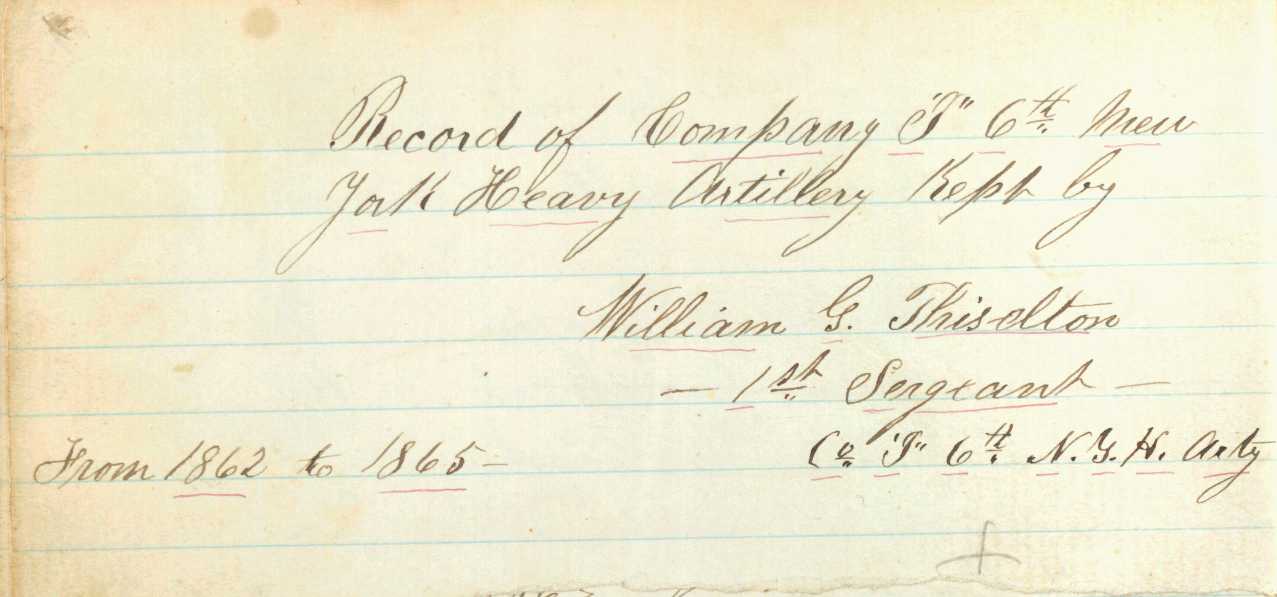 Record of Company "F" 6th New
York Heavy Artillery Kept by
William G. Thiselton
— 1st Sergeant —
From 1862 to 1865 –
Co "F" 6th N.Y.H. Arty